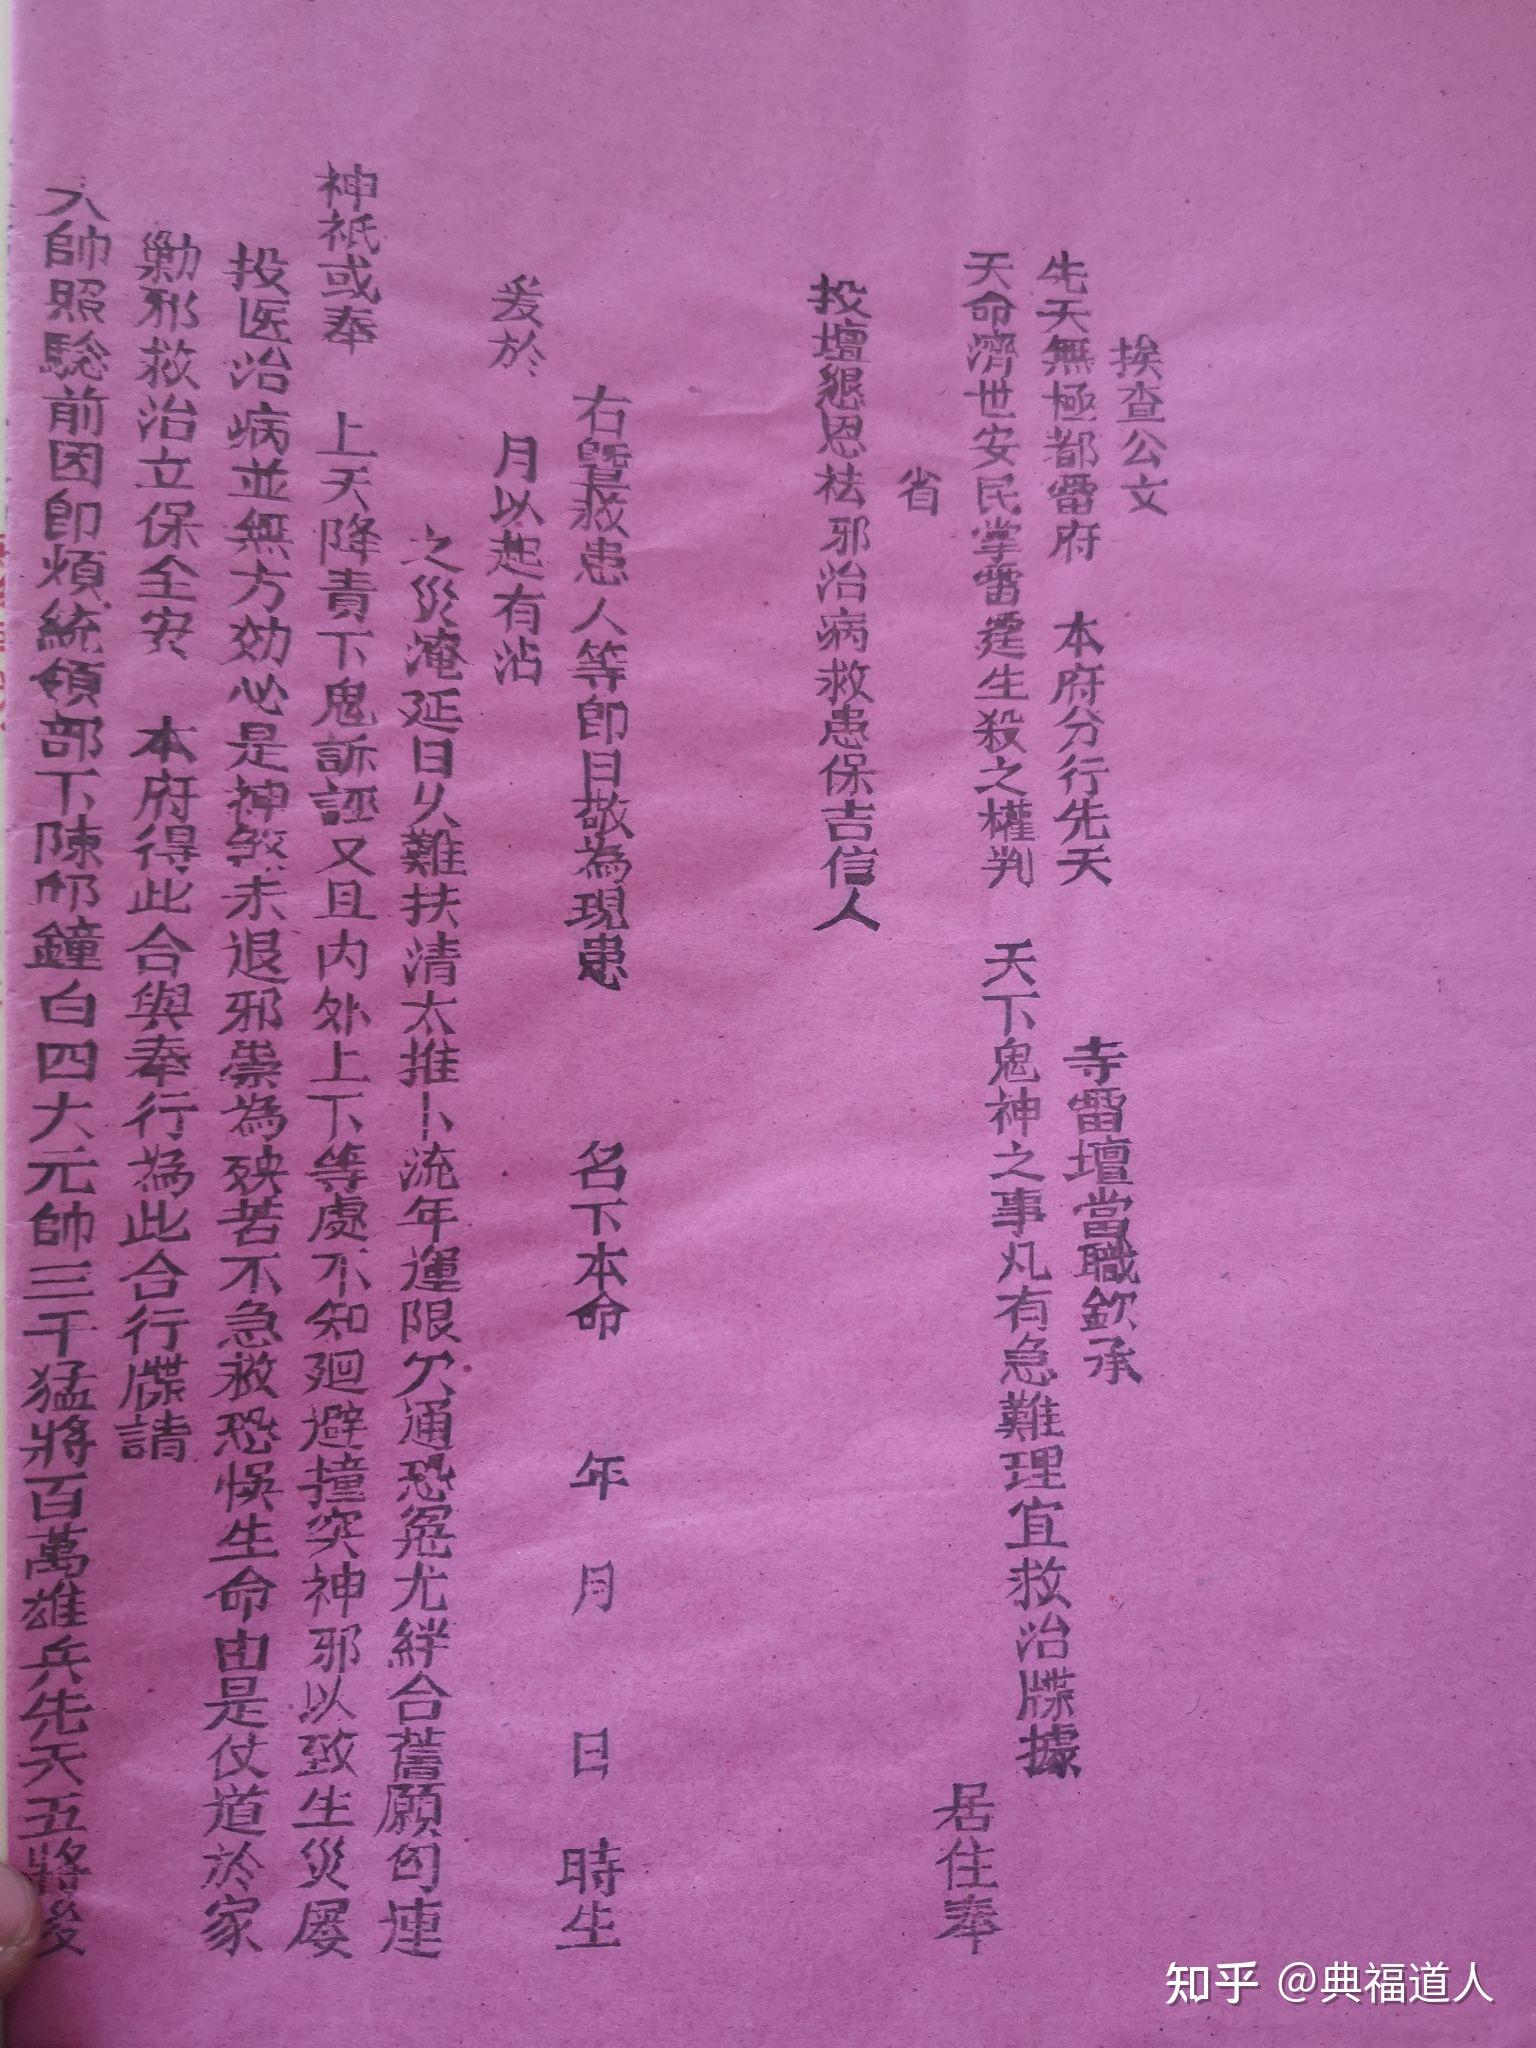 挨查公文
先天無極都雷府 本府分行先天 寺雷壇當職欽承
天命濟世安民掌雷霆生殺之權判 天下鬼神之事凡有急難理宜救治牒據
省 居住奉
投壇懇恩祛邪治病救患保吉信人
右暨救患人等卽日敬為現患 名下本命 年 月 日 時生
爰於 月以起有沾
之災淹延日久難扶清太推卜流年運限欠通恐冤尤絆合舊願勾連
神祇或奉 上天降責下鬼訴誣又且内外上下等處不知廻避撞突神邪以致生災屡
投医治病並無方効必是神煞未退邪祟為殃若不急救恐悮生命由是仗道於家
勦邪救治立保全安 本府得此合與奉行為此合行牒請
大帥照騐前因卽煩統領部下陳邴鐘白四大元帥三千猛將百萬雄兵先天五將後
知乎 @典福道人